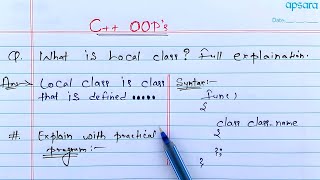 apsara
C++ OOP's
Q. What is Local class? full explaination.
Ans→ Local class is class
that is defined .....
#. Explain with practical
program:-
Syntax:-
func()
{
class class_name
{
};
}